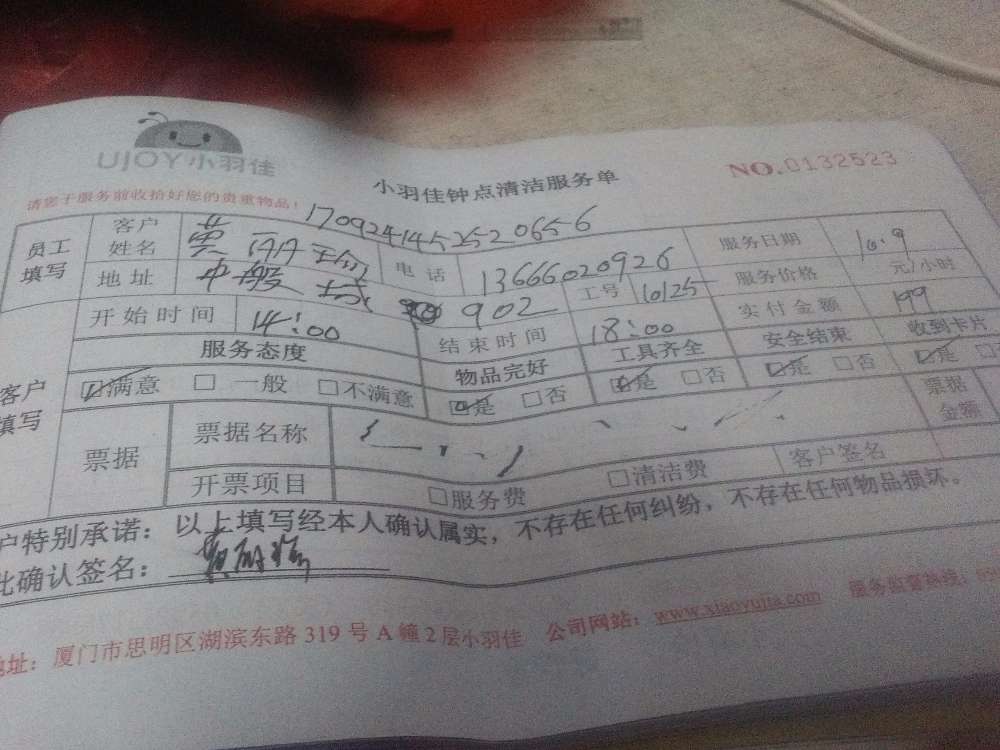 UJOY小羽佳
小羽佳钟点清洁服务单
NO.0132523
请您于服务前收拾好您的贵重物品！
170924145252065 6
员工填写 客户姓名 黄 电话 13666020926 服务日期 10.9
地址 902 工号 10125 服务价格 元/小时
客户填写 开始时间 14:00 结束时间 18:00 实付金额 199
服务态度 物品完好 工具齐全 安全结束 收到卡片
☑满意 □一般 □不满意 ☑是 □否 ☑是 □否 ☑是 □否 ☑是
票据 票据名称 票据金额
开票项目 □服务费 □清洁费 客户签名
户特别承诺：以上填写经本人确认属实，不存在任何纠纷，不存在任何物品损坏。
此确认签名：
地址：厦门市思明区湖滨东路 319 号 A 幢 2 层小羽佳 公司网站：www.xiaoyujia.com 服务监督热线：